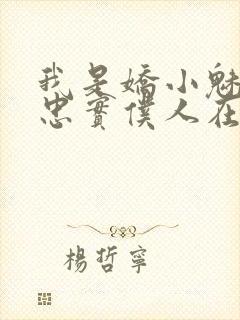 我是嬌小魅
忠實僕人在
楊哲寧